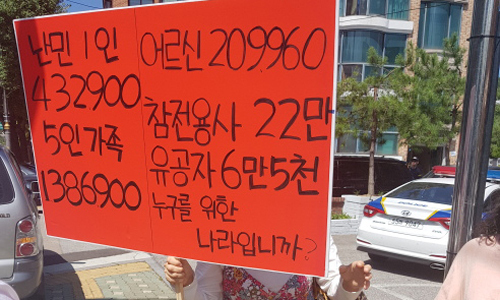 난민 1인
432900
5인가족
1386900
어르신 209960
참전용사 22만
유공자 6만5천
누구를 위한
나라입니까?